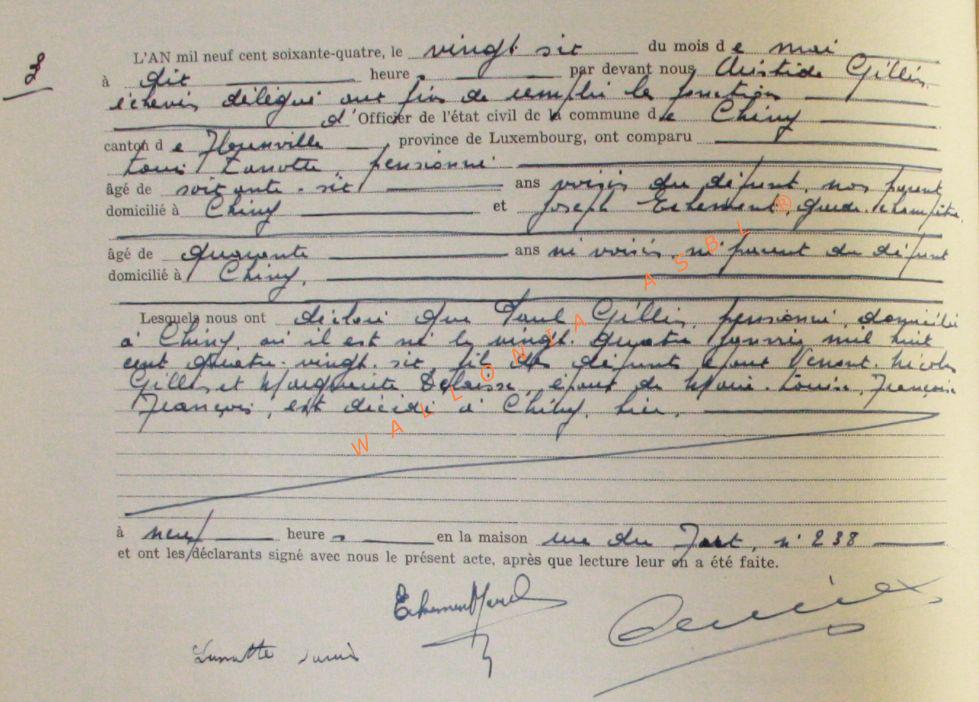 3
L'AN mil neuf cent soixante-quatre, le vingt six du mois de mai
à dix heures par devant nous Aristide Gillis
échevin délégué aux fins de remplir la fonction
d'Officier de l'état civil de la commune de Chiny
canton de Florenville, province de Luxembourg, ont comparu
Louis Lanotte, pensionné
âgé de soixante-six ans voisin du défunt, non parent
domicilié à Chiny et Joseph garde-champêtre,
âgé de quarante ans ni voisin, ni parent du défunt
domicilié à Chiny,
Lesquels nous ont déclaré que Paul Gillis, pensionné, domicilié
à Chiny, où il est né le vingt-quatre janvier mil huit
cent quatre-vingt-six, fils des défunts époux Nicolas
Gilles et Marguerite Delaisse, époux de Marie-Louise, Françoise
François, est décédé à Chiny, hier,
à neuf heures en la maison rue du Fort, n° 238
et ont les déclarants signé avec nous le présent acte, après que lecture leur en a été faite.
WALLONIA ASBL ®